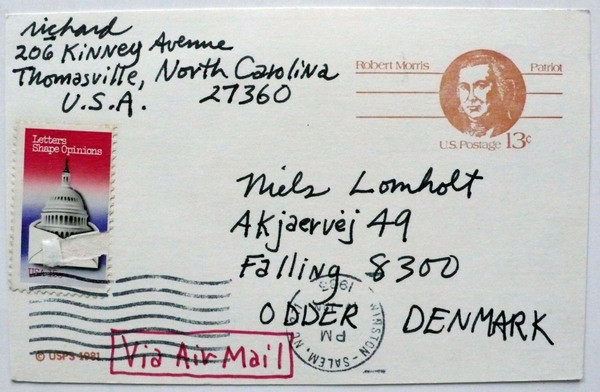 richard
206 Kinney Avenue
Thomasville, North Carolina
U.S.A. 27360
Robert Morris Patriot
U.S. Postage 13¢
Letters
Shape Opinions
Niels Lomholt
Akjaervej 49
Falling 8300
ODDER DENMARK
PM
1983
WINSTON-SALEM, NC
Via Air Mail
© USPS 1981